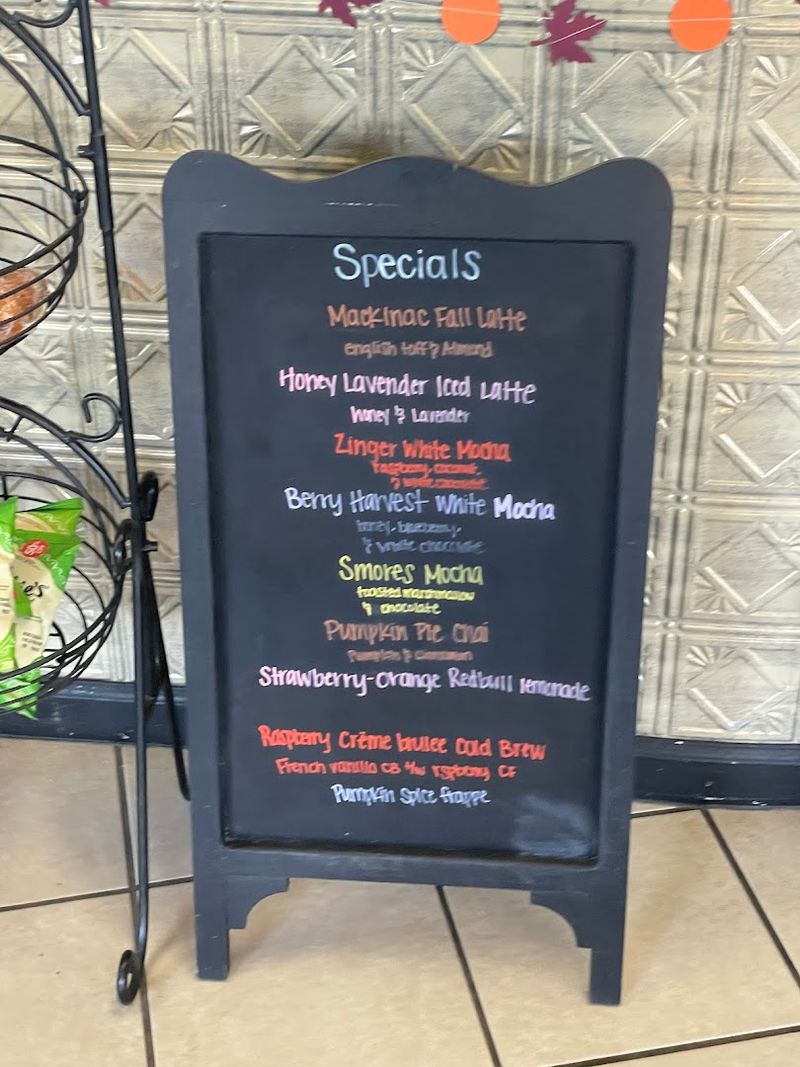 Specials
Mackinac Fall Latte
english toff & Almond
Honey Lavender Iced Latte
Honey & Lavender
Zinger White Mocha
raspberry, coconut,
& white chocolate
Berry Harvest White Mocha
honey, blueberry,
& white chocolate
Smores Mocha
toasted marshmallow
& chocolate
Pumpkin Pie Chai
Pumpkin & Cinnamon
Strawberry-Orange Redbull lemonade
Raspberry Crème brulee Cold Brew
French vanilla CB w/ rspberry CF
Pumpkin Spice frappe